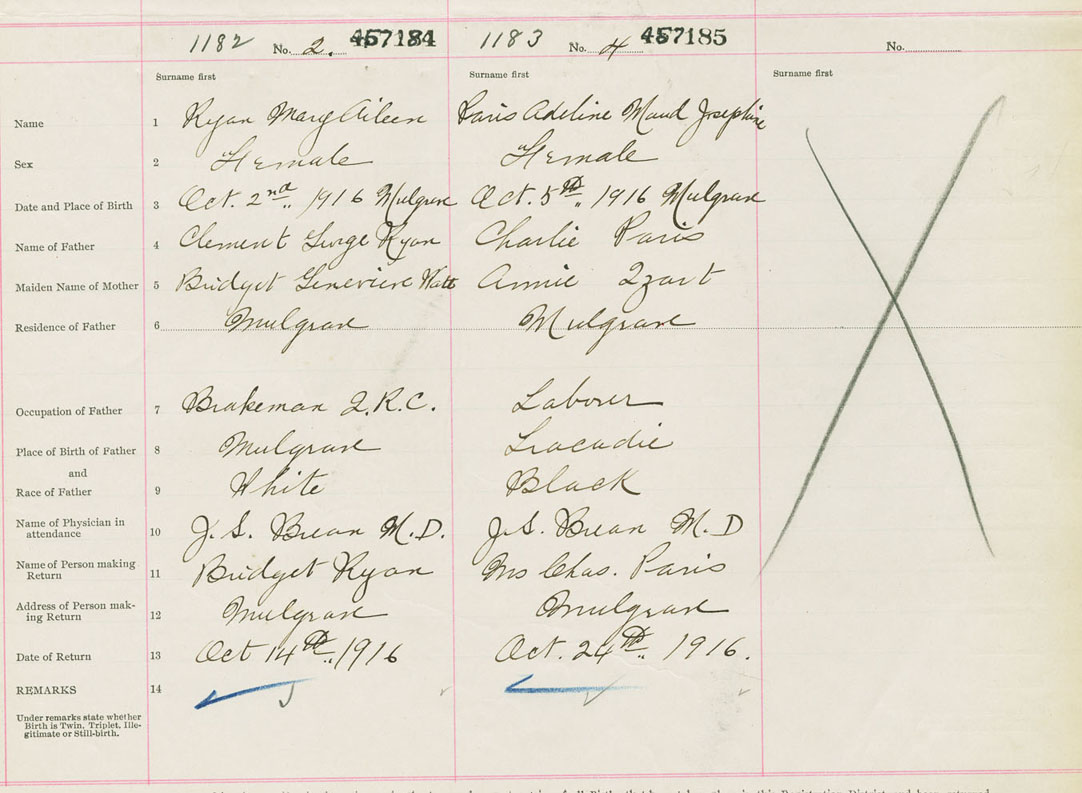 1182 No. 2. 457184 1183 No. 4 457185 No.
Surname first Surname first Surname first
Name 1 Ryan Mary Aileen Paris Adeline Maud Josephine
Sex 2 Female Female
Date and Place of Birth 3 Oct. 2nd. 1916 Mulgrave Oct. 5th. 1916 Mulgrave
Name of Father 4 Clement George Ryan Charlie Paris
Maiden Name of Mother 5 Bridget Genevieve Annie Izart
Residence of Father 6 Mulgrave Mulgrave
Occupation of Father 7 Brakeman I.R.C. Laborer
Place of Birth of Father 8 Mulgrave Tracadie
and
Race of Father 9 White Black
Name of Physician in
attendance 10 J. S. Brean M.D. J. S. Brean M. D
Name of Person making
Return 11 Bridget Ryan Mrs Chas. Paris
Address of Person mak-
ing Return 12 Mulgrave Mulgrave
Date of Return 13 Oct 14th., 1916 Oct. 24th., 1916.
REMARKS 14
Under remarks state whether
Birth is Twin, Triplet, Ille-
gitimate or Still-birth.